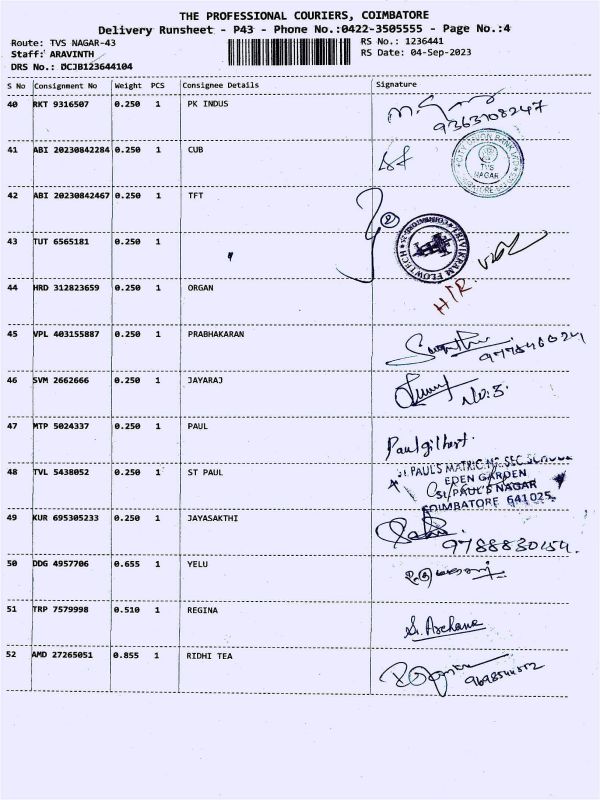 THE PROFESSIONAL COURIERS, COIMBATORE
Delivery Runsheet - P43 - Phone No.:0422-3505555 - Page No.:4
Route: TVS NAGAR-43 RS No.: 1236441
Staff: ARAVINTH RS Date: 04-Sep-2023
DRS No.: DCJB123644104
S No Consignment No Weight PCS Consignee Details Signature
40 RKT 9316507 0.250 1 PK INDUS
9363108247
41 ABI 20230842284 0.250 1 CUB
CITY UNION BANK LTD
TVS
NAGAR
42 ABI 20230842467 0.250 1 TFT
2
43 TUT 6565181 0.250 1
TRIVIKRAM FLOWTECH
44 HRD 312823659 0.250 1 ORGAN
H/R
45 VPL 403155887 0.250 1 PRABHAKARAN
46 SVM 2662666 0.250 1 JAYARAJ
No:3.
47 MTP 5024337 0.250 1 PAUL
Paulgilbert.
48 TVL 5438052 0.250 1 ST PAUL
ST PAUL'S MATRIC.HR.SEC.SCHOOL
EDEN GARDEN
ST. PAUL'S NAGAR
COIMBATORE 641025
49 KUR 695305233 0.250 1 JAYASAKTHI
50 DDG 4957706 0.655 1 YELU
51 TRP 7579998 0.510 1 REGINA
Sr. Archana
52 AMD 27265051 0.855 1 RIDHI TEA